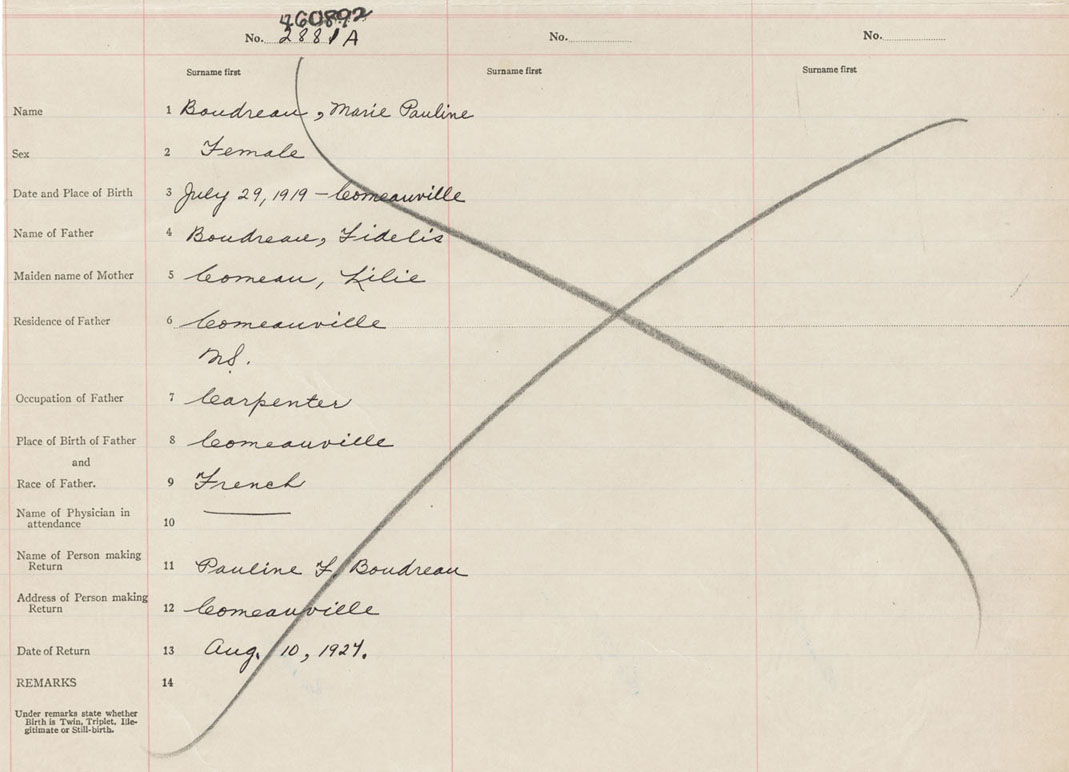 460892
No. 2881A No. No.
Surname first Surname first Surname first
Name 1 Boudreau, Marie Pauline
Sex 2 Female
Date and Place of Birth 3 July 29, 1919 – Comeauville
Name of Father 4 Boudreau, Fidelis
Maiden name of Mother 5 Comeau, Lilie
Residence of Father 6 Comeauville
N.S.
Occupation of Father 7 Carpenter
Place of Birth of Father 8 Comeauville
and
Race of Father. 9 French
Name of Physician in
attendance 10
Name of Person making
Return 11 Pauline F. Boudreau
Address of Person making
Return 12 Comeauville
Date of Return 13 Aug. 10, 1927.
REMARKS 14
Under remarks state whether
Birth is Twin, Triplet, Ille-
gitimate or Still-birth.